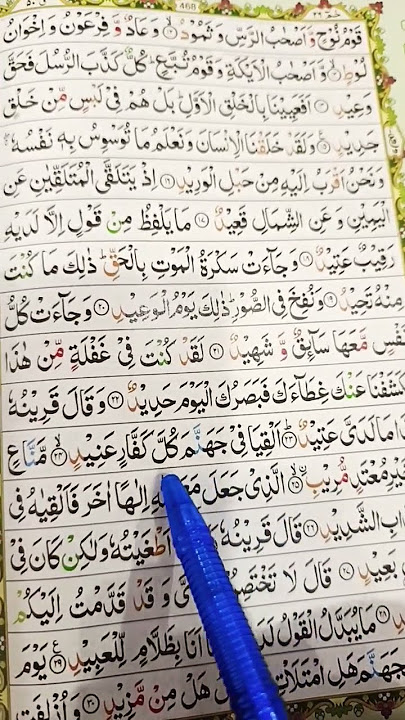 ٤٦٨
قَوْمُ نُوْحٍ وَّاَصْحٰبُ الرَّسِّ وَثَمُوْدُ ۙ﴿۱۲﴾ وَعَادٌ وَّفِرْعَوْنُ وَاِخْوَانُ
لُوْطٍ ۙ﴿۱۳﴾ وَّاَصْحٰبُ الْاَيْكَةِ وَقَوْمُ تُبَّعٍ ؕ كُلٌّ كَذَّبَ الرُّسُلَ فَحَقَّ
وَعِيْدِ ﴿۱۴﴾ اَفَعَيِيْنَا بِالْخَلْقِ الْاَوَّلِ ؕ بَلْ هُمْ فِيْ لَبْسٍ مِّنْ خَلْقٍ
جَدِيْدٍ ﴿۱۵﴾ وَلَقَدْ خَلَقْنَا الْاِنْسَانَ وَنَعْلَمُ مَا تُوَسْوِسُ بِهٖ نَفْسُهٗ ۚ
وَنَحْنُ اَقْرَبُ اِلَيْهِ مِنْ حَبْلِ الْوَرِيْدِ ﴿۱۶﴾ اِذْ يَتَلَقَّى الْمُتَلَقِّيٰنِ عَنِ
الْيَمِيْنِ وَعَنِ الشِّمَالِ قَعِيْدٌ ﴿۱۷﴾ مَا يَلْفِظُ مِنْ قَوْلٍ اِلَّا لَدَيْهِ
رَقِيْبٌ عَتِيْدٌ ﴿۱۸﴾ وَجَآءَتْ سَكْرَةُ الْمَوْتِ بِالْحَقِّ ؕ ذٰلِكَ مَا كُنْتَ
مِنْهُ تَحِيْدُ ﴿۱۹﴾ وَنُفِخَ فِي الصُّوْرِ ؕ ذٰلِكَ يَوْمُ الْوَعِيْدِ ﴿۲۰﴾ وَجَآءَتْ كُلُّ
نَفْسٍ مَّعَهَا سَآئِقٌ وَّشَهِيْدٌ ﴿۲۱﴾ لَقَدْ كُنْتَ فِيْ غَفْلَةٍ مِّنْ هٰذَا
فَكَشَفْنَا عَنْكَ غِطَآءَكَ فَبَصَرُكَ الْيَوْمَ حَدِيْدٌ ﴿۲۲﴾ وَقَالَ قَرِيْنُهٗ
مَا لَدَيَّ عَتِيْدٌ ؕ﴿۲۳﴾ اَلْقِيَا فِيْ جَهَنَّمَ كُلَّ كَفَّارٍ عَنِيْدٍ ۙ﴿۲۴﴾ مَّنَّاعٍ
لِّلْخَيْرِ مُعْتَدٍ مُّرِيْبِ ۙ﴿۲۵﴾ الَّذِيْ جَعَلَ اِلٰهًا اٰخَرَ فَاَلْقِيٰهُ فِي
الشَّدِيْدِ ﴿۲۶﴾ قَالَ قَرِيْنُهٗ اَطْغَيْتُهٗ وَلٰكِنْ كَانَ فِيْ
بَعِيْدٍ ﴿۲۷﴾ قَالَ لَا وَقَدْ قَدَّمْتُ اِلَيْكُمْ
﴿۲۸﴾ مَا يُبَدَّلُ الْقَوْلُ اَنَا بِظَلَّامٍ لِّلْعَبِيْدِ ﴿۲۹﴾ يَوْمَ
لِجَهَنَّمَ هَلِ امْتَلَاْتِ هَلْ مِنْ مَّزِيْدٍ ﴿۳۰﴾ وَاُزْلِفَتِ